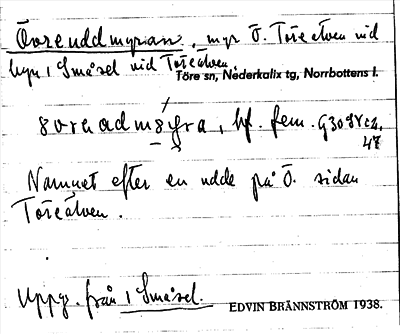 Övreuddmyran, myr Ö. Töreälven vid
byn 1 Småsel vid Töreälven.
Töre sn, Nederkalix tg, Norrbottens l.
bf. fem.
47
Namnet efter en udde på Ö. sidan
Töreälven.
Uppg. från 1 Småsel.
EDVIN BRÄNNSTRÖM 1938.